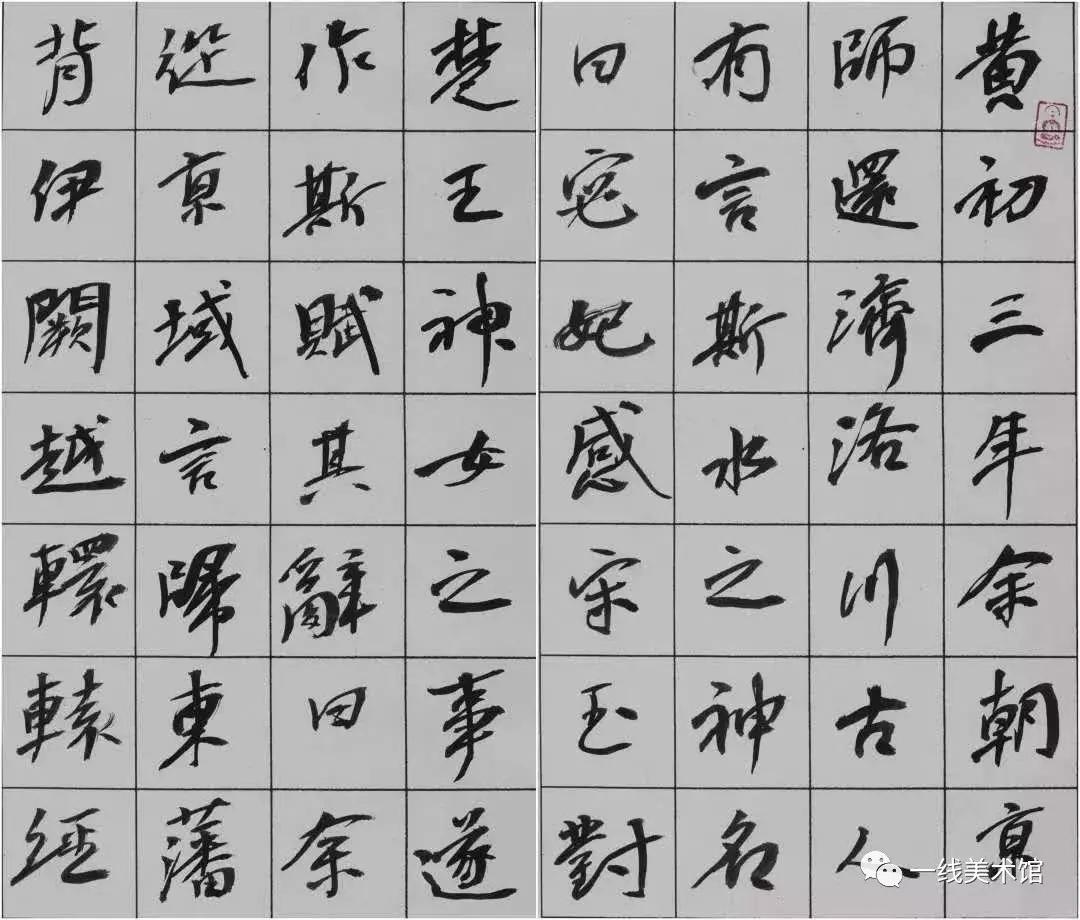 黄初三年余朝京
師還濟洛川古人
有言斯水之神名
曰宓妃感宋玉對
楚王神女之事遂
作斯賦其辭曰余
從京域言歸東藩
背伊闕越轘轅經
一线美术馆